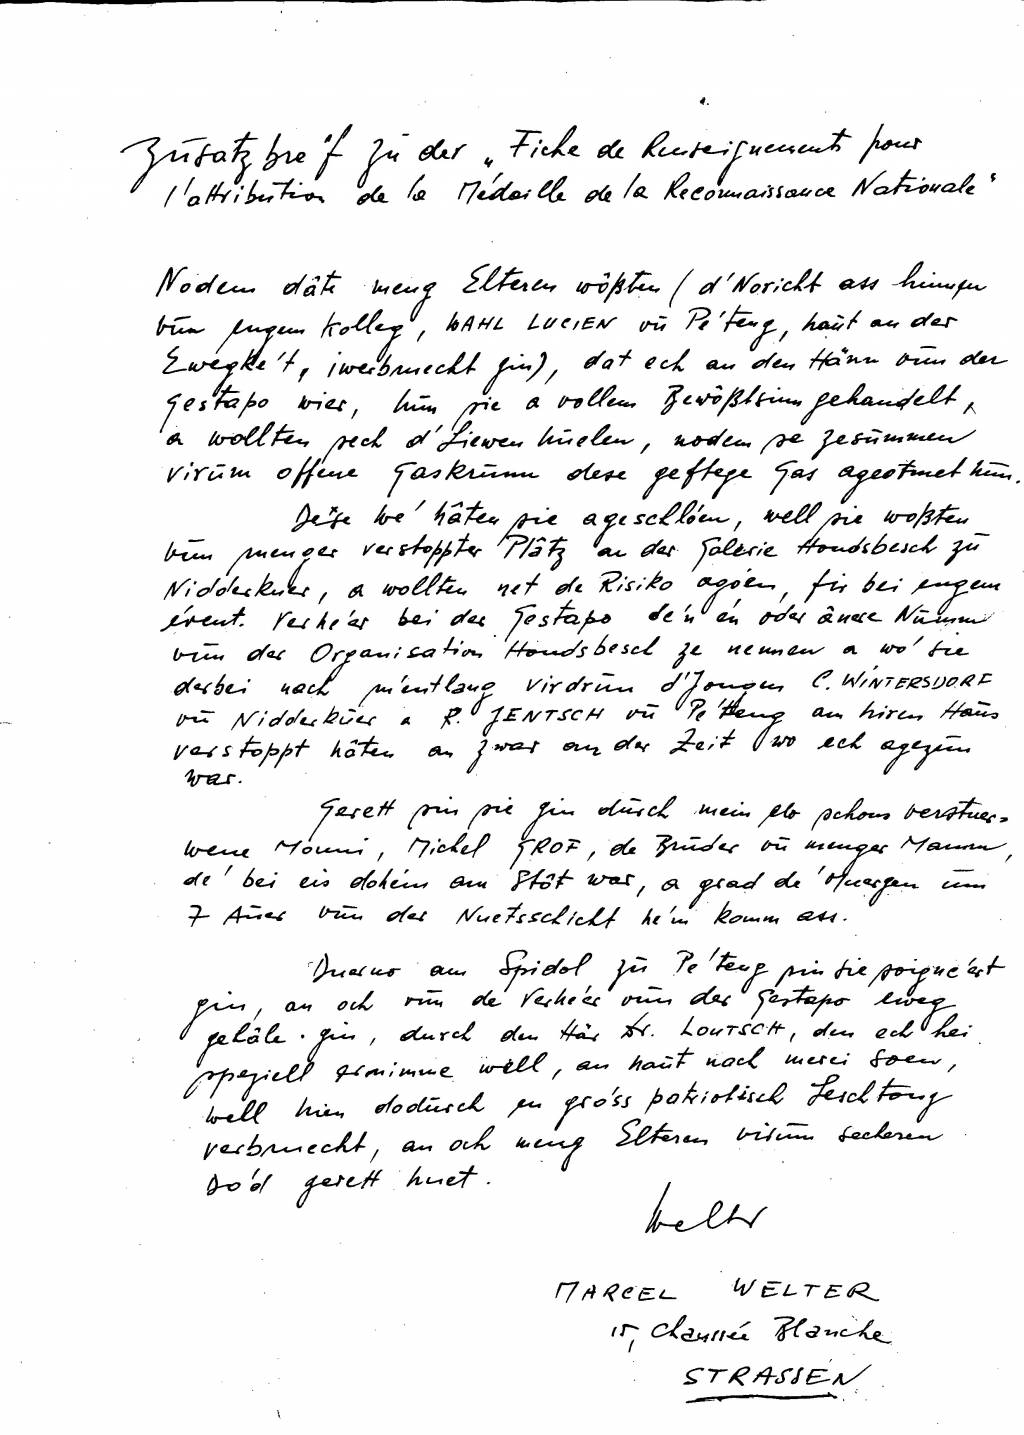 Zusatzbre'f zu der „Fiche de Renseignements pour
l'attribution de la Médaille de la Reconnaissance Nationale"
Nodem dâte meng Elteren wößten (d'Noricht ass hinnen
vun engem Kolleg, WAHL LUCIEN vu Pe'teng, haut an der
Ewegke't, iwerbruecht gin), dat ech an den Hänn vun der
Gestapo wier, hun sie a vollem Bewößtsinn gehandelt,
a wollten sech d'Liewen huelen, nodem se zesummen
virum offene Gaskrunn dese geftege Gas ageotmet hun.
Dese We' hâten sie ageschlóen, well sie woßten
vun menger verstoppter Plâtz an der Galerie Hondsbesch zu
Nidderkuer, a wollten net de Risiko agóen, fir bei engem
évent. Verhe'er bei der Gestapo de'n én oder ânere Numm
vun der Organisation Hondsbesch ze nennen a wo' sie
derbei nach me'ntlang virdrun d'Jongen C. WINTERSDORF
vu Nidderkuer a R. JENTSCH vu Pe'teng an hirem Haus
verstoppt hâten an zwar an der Zeit wo ech agezun
war.
Gerett sin sie gin durch mein elo schons verstuer=
wene Monni, Michel GROF, de Bruder vu menger Mamm,
de' bei eis dohém am Stôt war, a grad de' Muergen um
7 Auer vun der Nuetsschicht hém komm ass.
Duerno am Spidol zu Pe'teng sin sie soigne'ert
gin, an och vun de Verhe'er vun der Gestapo eweg
gehâle gin, durch den Här Dr. LOUTSCH, den ech hei
speziell ernimme well, an haut nach merci soen,
well hien dodurch en gro'ss patriotisch Leschtong
verbruecht, an och meng Elteren virum secheren
Do'd gerett huet.
Welter
MARCEL WELTER
15, Chaussée Blanche
STRASSEN